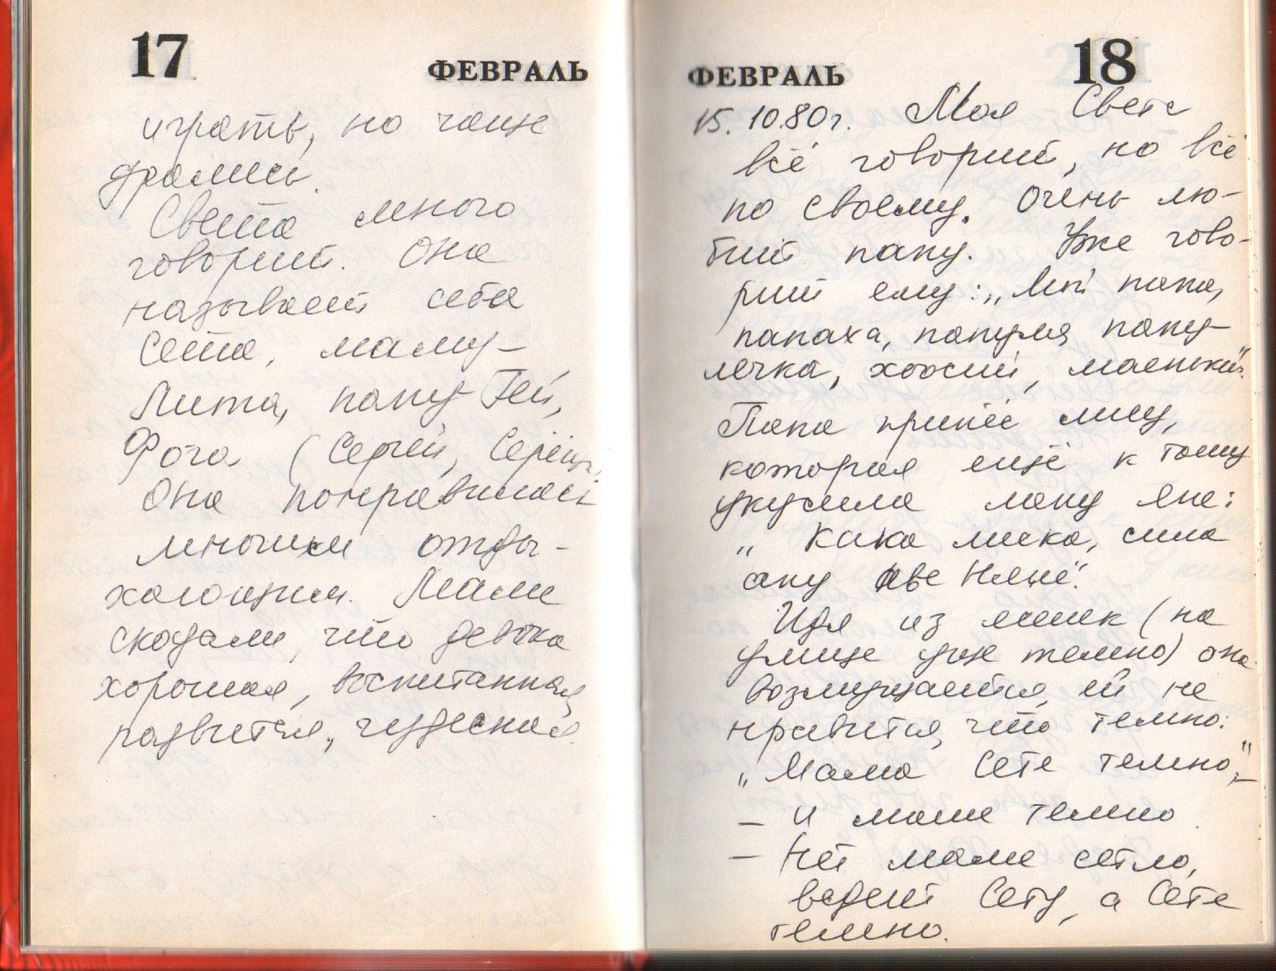 17
ФЕВРАЛЬ
играть, но чаще
дрались.
Света много
говорит. Она
называет себя
Сета, маму –
Лита, папу Гей,
Фога (Сергей, Серёга)
Она понравилась
многим отды-
хающим. Мамы
сказали, что девочка
хорошая, воспитанная,
развитая, чудесная.
ФЕВРАЛЬ
18
15.10.80г. Моя Света
всё говорит, но всё
по своему. Очень лю-
бит папу. Уже гово-
рит ему: „Мой папа,
папаха, папуля, папу-
лечка, хоосий, маенький".
Папа принёс лису,
которая ещё к тому
укусила лапу
„ Кака лиска,
Идя из (на
улице уже темно) она
возмущается, ей не
нравится, что темно:
„Мама Сете темно", –
– и маме темно.
– Нет маме сетло,
ведет Сету, а Сете
темно.